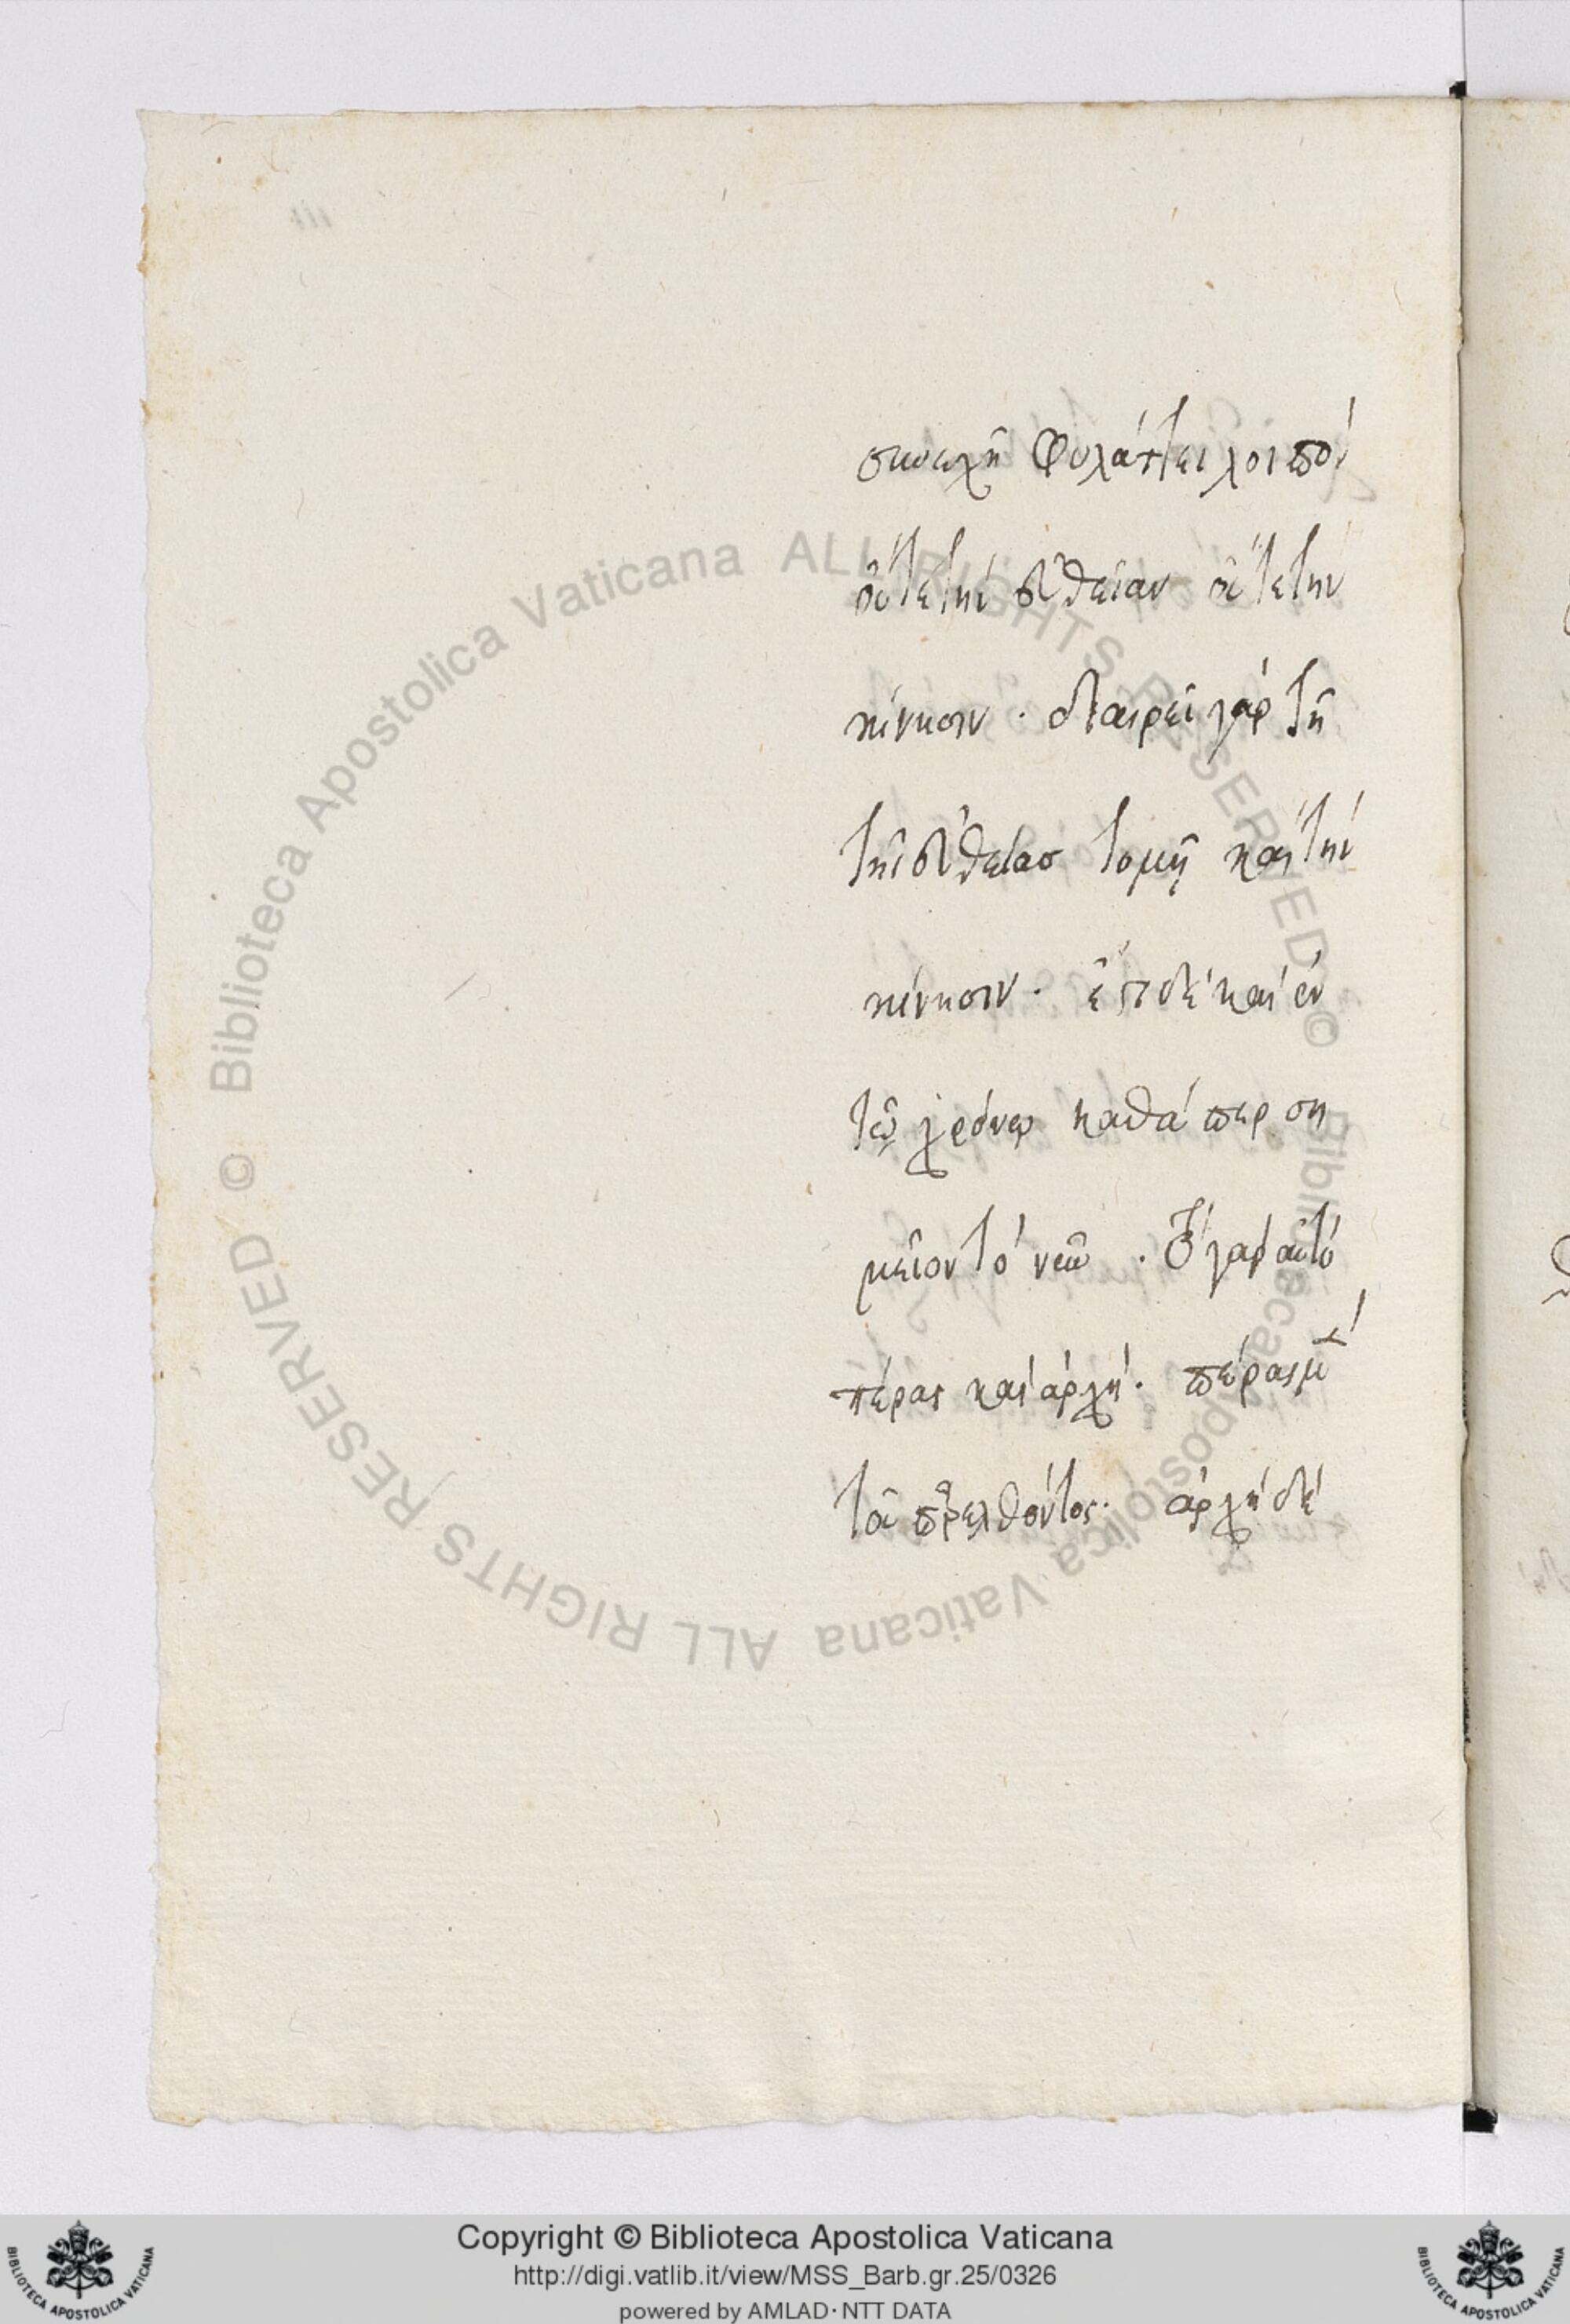 συνεχῆ φυλάττει λοιπὸν
οὔτε τὴν εὐθεῖαν οὔτε τὴν
κίνησιν. διαιρεῖ γὰρ τῇ
τῆς εὐθείας τομῇ καὶ τὴν
κίνησιν. ἔτι δὲ καὶ ἐν
τῷ χρόνῳ καθάπερ ση
μεῖον τὸ νῦν. τὸ γὰρ αὐτὸ
πέρας καὶ ἀρχή. πέρας μὲν
τοῦ παρελθόντος. ἀρχὴ δὲ
© Biblioteca Apostolica Vaticana ALL RIGHTS RESERVED
© Biblioteca Apostolica Vaticana ALL RIGHTS RESERVED
BIBLIOTECA APOSTOLICA VATICANA
Copyright © Biblioteca Apostolica Vaticana
http://digi.vatlib.it/view/MSS_Barb.gr.25/0326
powered by AMLAD · NTT DATA
BIBLIOTECA APOSTOLICA VATICANA